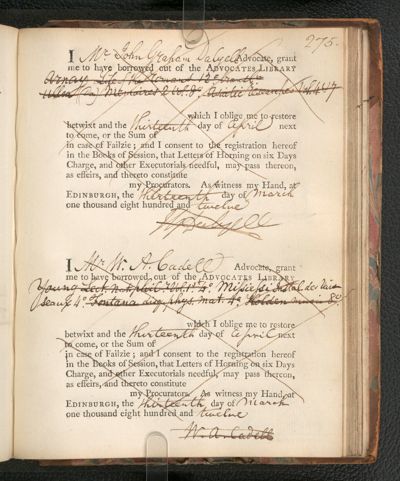 275.
I Mr. John Graham Dalyell Advocate, grant
me to have borrowed, out of the ADVOCATES LIBRARY
Arnay
Memoires 2 vol. 8°. Asiatic Researches
which I oblige me to restore
betwixt and the thirteenth day of April next
to come, or the Sum of
in case of Failzie; and I consent to the registration hereof
in the Books of Session, that Letters of Horning on six Days
Charge, and other Executorials needful, may pass thereon,
as effeirs, and thereto constitute
my Procurators. As witness my Hand, at
EDINBURGH, the thirteenth day of March
one thousand eight hundred and twelve
Dalyell
I Mr. W. A. Cadell Advocate, grant
me to have borrowed, out of the ADVOCATES LIBRARY
Young Lect. Nat. phil. 4°. de
4° Fontana phys. mat. 4° Holden
which I oblige me to restore
betwixt and the thirteenth day of April next
to come, or the Sum of
in case of Failzie; and I consent to the registration hereof
in the Books of Session, that Letters of Horning on six Days
Charge, and other Executorials needful, may pass thereon,
as effeirs, and thereto constitute
my Procurators. As witness my Hand, at
EDINBURGH, the thirteenth day of March
one thousand eight hundred and twelve
W. A. Cadell